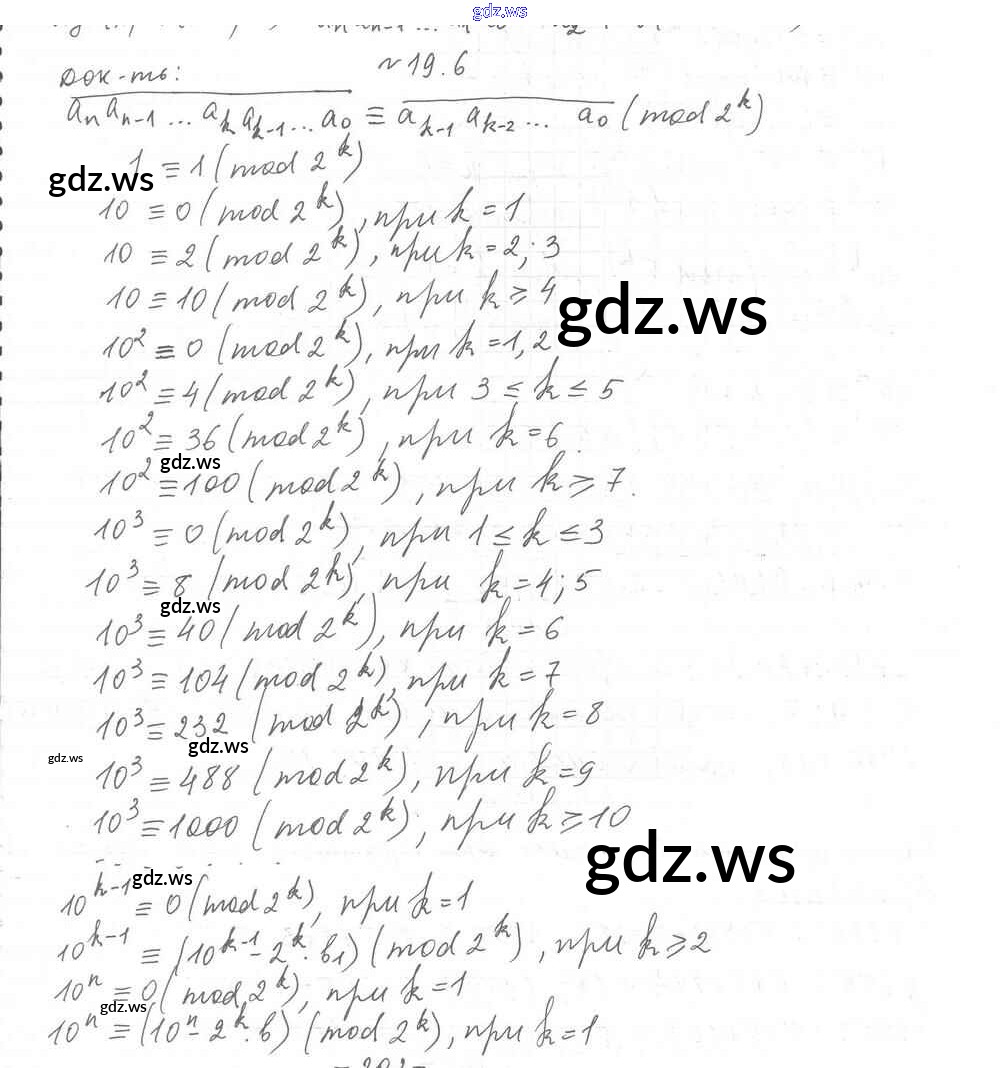 gdz.ws
№ 19.6
Док-ть:
a_n a_{n-1} ... a_k a_{k-1} ... a_0 ≡ a_{k-1} a_{k-2} ... a_0 (mod 2^k)
1 ≡ 1 (mod 2^k)
gdz.ws
10 ≡ 0 (mod 2^k), при k = 1
10 ≡ 2 (mod 2^k), при k = 2; 3
10 ≡ 10 (mod 2^k), при k ≥ 4
gdz.ws
10^2 ≡ 0 (mod 2^k), при k = 1, 2
10^2 ≡ 4 (mod 2^k), при 3 ≤ k ≤ 5
10^2 ≡ 36 (mod 2^k), при k = 6
gdz.ws
10^2 ≡ 100 (mod 2^k), при k ≥ 7.
10^3 ≡ 0 (mod 2^k), при 1 ≤ k ≤ 3
10^3 ≡ 8 (mod 2^k), при k = 4; 5
gdz.ws
10^3 ≡ 40 (mod 2^k), при k = 6
10^3 ≡ 104 (mod 2^k), при k = 7
10^3 ≡ 232 (mod 2^k), при k = 8
gdz.ws
gdz.ws
10^3 ≡ 488 (mod 2^k), при k = 9
10^3 ≡ 1000 (mod 2^k), при k ≥ 10
gdz.ws
gdz.ws
10^{k-1} ≡ 0 (mod 2^k), при k = 1
10^{k-1} ≡ (10^{k-1} - 2^k · b_1) (mod 2^k), при k ≥ 2
10^n ≡ 0 (mod 2^k), при k = 1
gdz.ws
10^n ≡ (10^n - 2^k · b) (mod 2^k), при k = 1